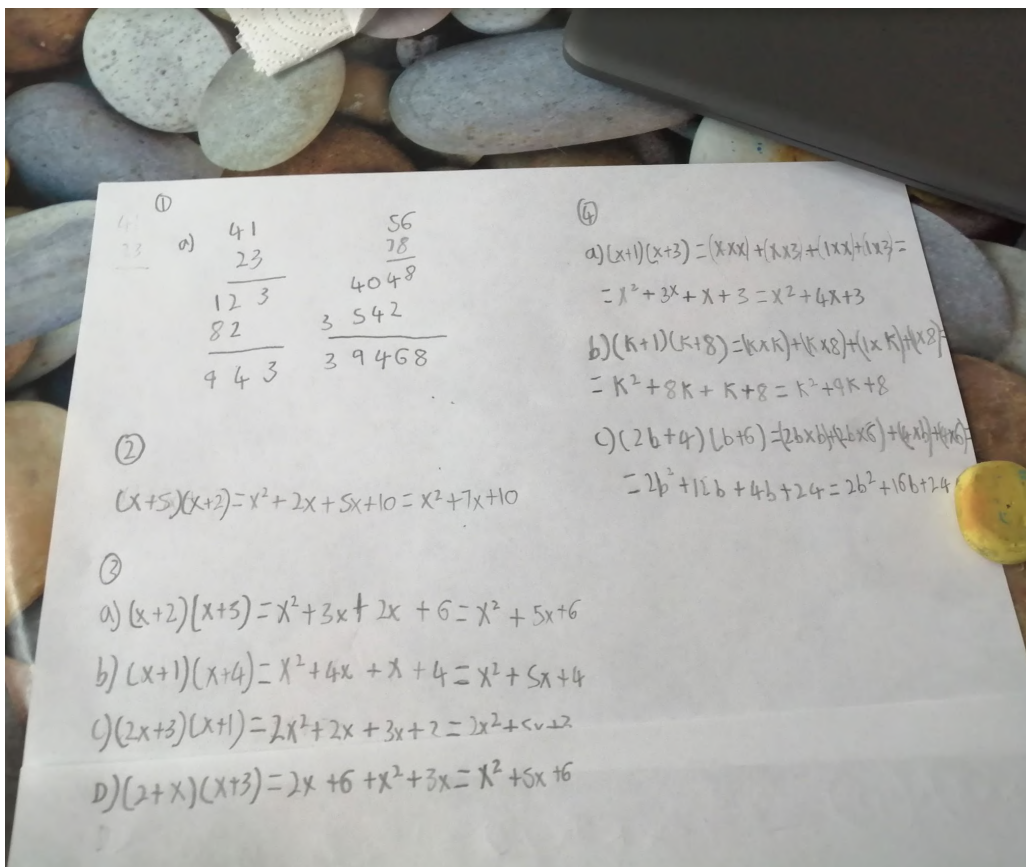 ①
a) 41
23
12 3
82
9 4 3
56
78
4048
3 542
3 9468
②
(x+5)(x+2)=x²+2x+5x+10=x²+7x+10
③
a) (x+2)(x+3)=x²+3x+2x+6=x²+5x+6
b) (x+1)(x+4)=x²+4x+x+4=x²+5x+4
c) (2x+3)(x+1)=2x²+2x+3x+2=2x²+5x+2
D) (2+x)(x+3)=2x+6+x²+3x=x²+5x+6
④
a) (x+1)(x+3)=(x×x)+(x×3)+(1×x)+(1×3)=
=x²+3x+x+3=x²+4x+3
b) (k+1)(k+8)=(k×k)+(k×8)+(1×k)+(1×8)=
=k²+8k+k+8=k²+9k+8
c) (2b+4)(b+6)=(2b×b)+(2b×6)+(4×b)+(4×6)=
=2b²+12b+4b+24=2b²+16b+24